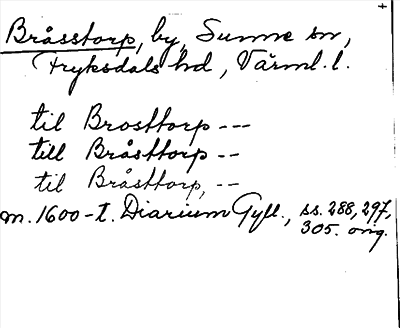 Bråsstorp, by, Sunne sn,
Fryksdals hd, Värml. l.
til Brosttorp ---
till Bråsttorp --
til Bråsttorp, --
m. 1600-t. Diarium Gyll., ss. 288, 297,
305. orig.